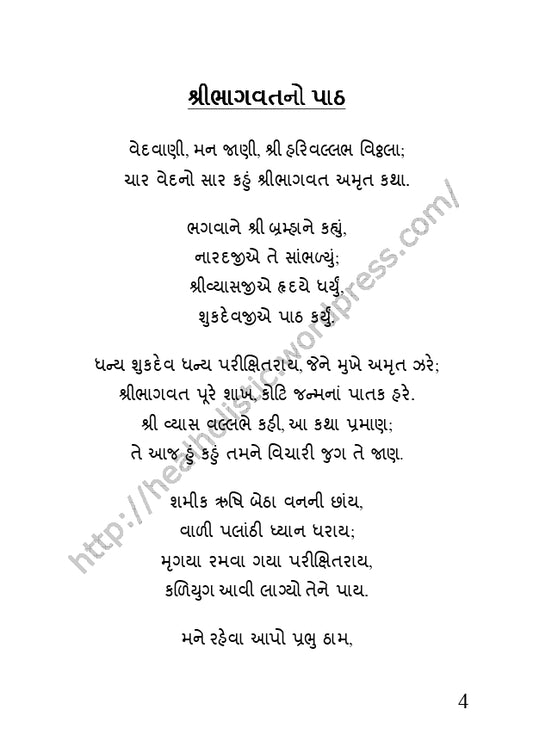 શ્રીભાગવતનો પાઠ
વેદવાણી, મન જાણી, શ્રી હરિવલ્લભ વિઠ્ઠલા;
ચાર વેદનો સાર કહું શ્રીભાગવત અમૃત કથા.
ભગવાને શ્રી બ્રમ્હાને કહ્યું,
નારદજીએ તે સાંભળ્યું;
શ્રીવ્યાસજીએ હૃદયે ધર્યું,
શુકદેવજીએ પાઠ કર્યું,
ધન્ય શુકદેવ ધન્ય પરીક્ષિતરાય, જેને મુખે અમૃત ઝરે;
શ્રીભાગવત પૂરે શાખ, કોટિ જન્મનાં પાતક હરે.
શ્રી વ્યાસ વલ્લભે કહી, આ કથા પ્રમાણ;
તે આજ હું કહું તમને વિચારી જુગ તે જાણ.
શમીક ઋષિ બેઠા વનની છાંય,
વાળી પલાંઠી ધ્યાન ધરાય;
મૃગયા રમવા ગયા પરીક્ષિતરાય,
કળિયુગ આવી લાગ્યો તેને પાય.
મને રહેવા આપો પ્રભુ ઠામ,
4
http://healholistic.wordpress.com/